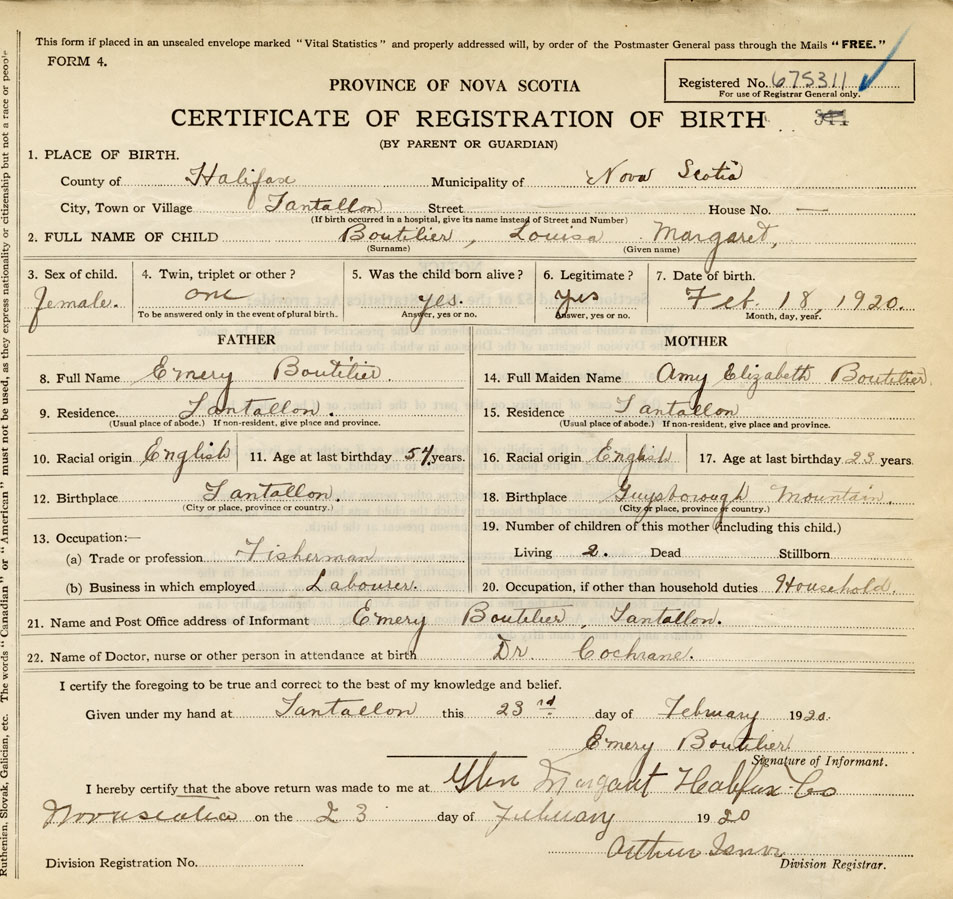 This form if placed in an unsealed envelope marked "Vital Statistics" and properly addressed will, by order of the Postmaster General pass through the Mails "FREE."
FORM 4.
Registered No. 675311
For use of Registrar General only.
PROVINCE OF NOVA SCOTIA
CERTIFICATE OF REGISTRATION OF BIRTH
(BY PARENT OR GUARDIAN)
1. PLACE OF BIRTH.
County of Halifax Municipality of Nova Scotia
City, Town or Village Tantallon Street House No. —
(If birth occurred in a hospital, give its name instead of Street and Number)
2. FULL NAME OF CHILD Boutilier, Louisa Margaret,
(Surname) (Given name)
3. Sex of child. 4. Twin, triplet or other? 5. Was the child born alive? 6. Legitimate? 7. Date of birth.
female. one yes. yes Feb. 18, 1920.
To be answered only in the event of plural birth. Answer, yes or no. Answer, yes or no. Month, day, year.
FATHER
8. Full Name Emery Boutilier.
9. Residence. Tantallon.
(Usual place of abode.) If non-resident, give place and province.
10. Racial origin English 11. Age at last birthday 57 years.
12. Birthplace Tantallon.
(City or place, province or country.)
13. Occupation:—
(a) Trade or profession Fisherman
(b) Business in which employed Labourer.
MOTHER
14. Full Maiden Name Amy Elizabeth Boutilier.
15. Residence Tantallon
(Usual place of abode.) If non-resident, give place and province.
16. Racial origin English 17. Age at last birthday 23 years.
18. Birthplace Guysborough Mountain.
(City or place, province or country.)
19. Number of children of this mother (including this child.)
Living 2. Dead Stillborn
20. Occupation, if other than household duties Household.
21. Name and Post Office address of Informant Emery Boutilier, Tantallon.
22. Name of Doctor, nurse or other person in attendance at birth Dr Cochrane.
I certify the foregoing to be true and correct to the best of my knowledge and belief.
Given under my hand at Tantallon this 23rd day of February 1920.
Emery Boutilier
Signature of Informant.
I hereby certify that the above return was made to me at Glen Margaret Halifax Co
Novascotia on the 23 day of February 1920
Arthur
Division Registration No. Division Registrar.
Ruthenian, Slovak, Galician, etc. The words "Canadian" or "American" must not be used, as they express nationality or citizenship but not a race or people